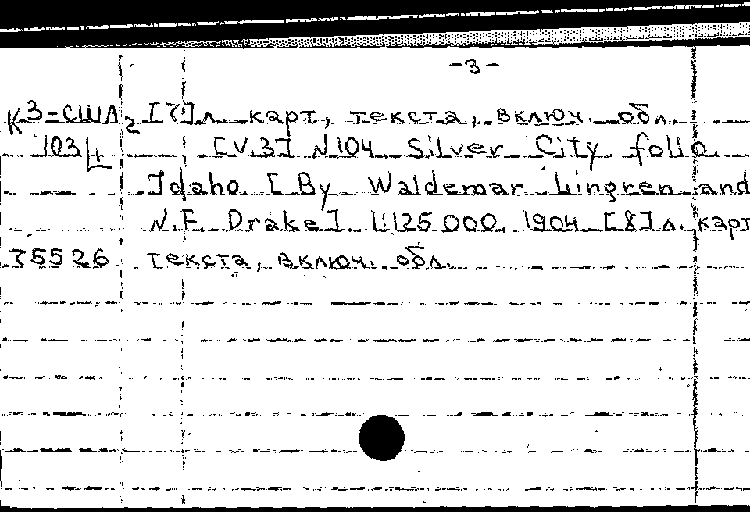 -3-
К3=США2 [7]л. карт, текста, включ. обл.
103/4 [V.3] N104 Silver City folio
Idaho. [By Waldemar Lingren and
N.F. Drake] 1:125000. 1904 [8]л. карт
T5526 текста, включ. обл.